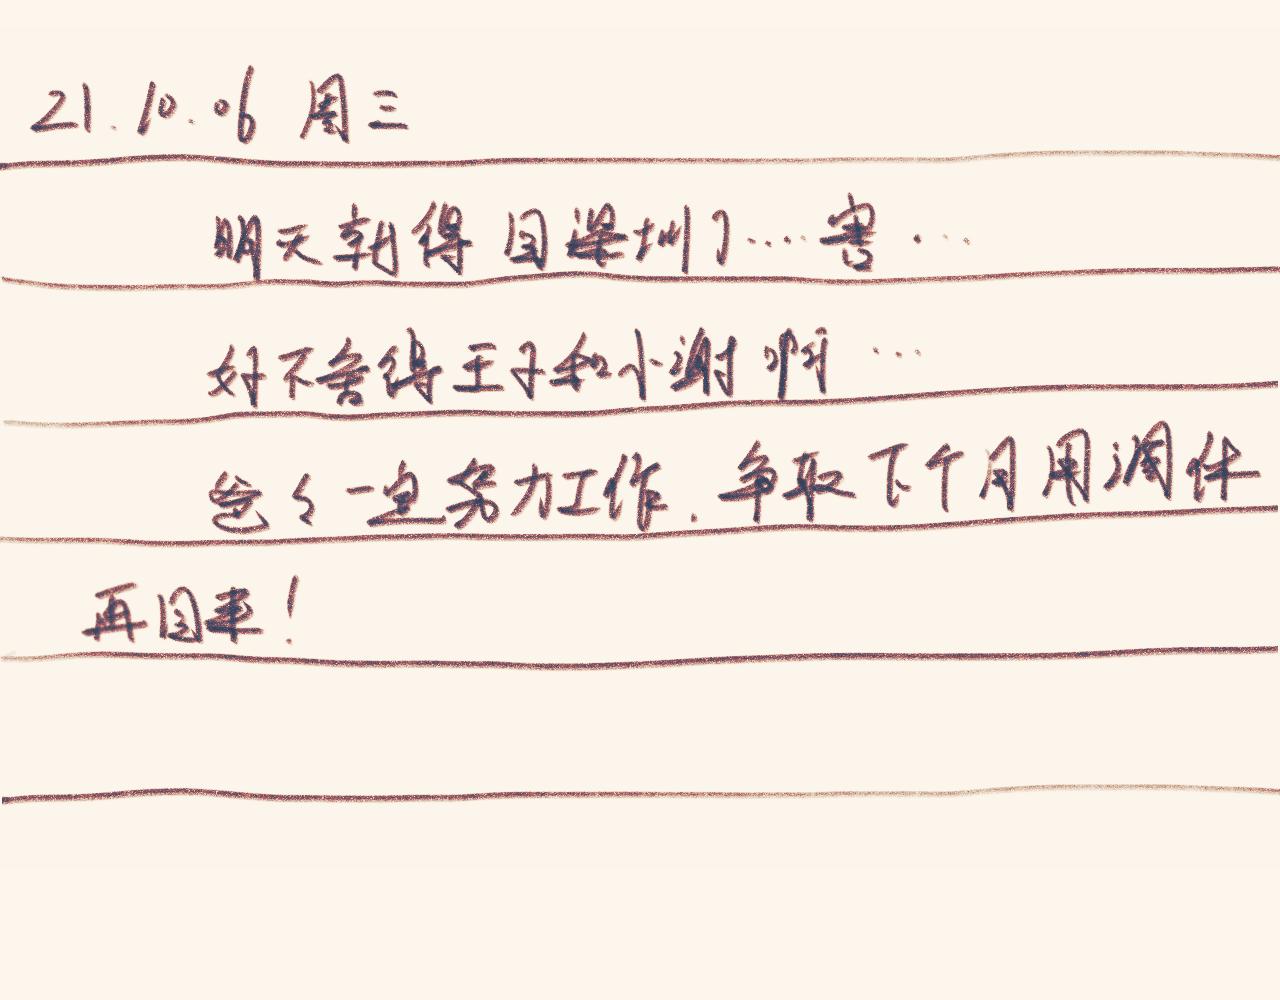 21.10.06 周三
明天就得回深圳了....害...
好不舍得王子和小谢啊...
爸爸一定努力工作.争取下个月用调休
再回来!